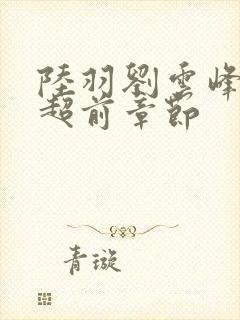 陸羽劉雲峰
超前章節
青璇